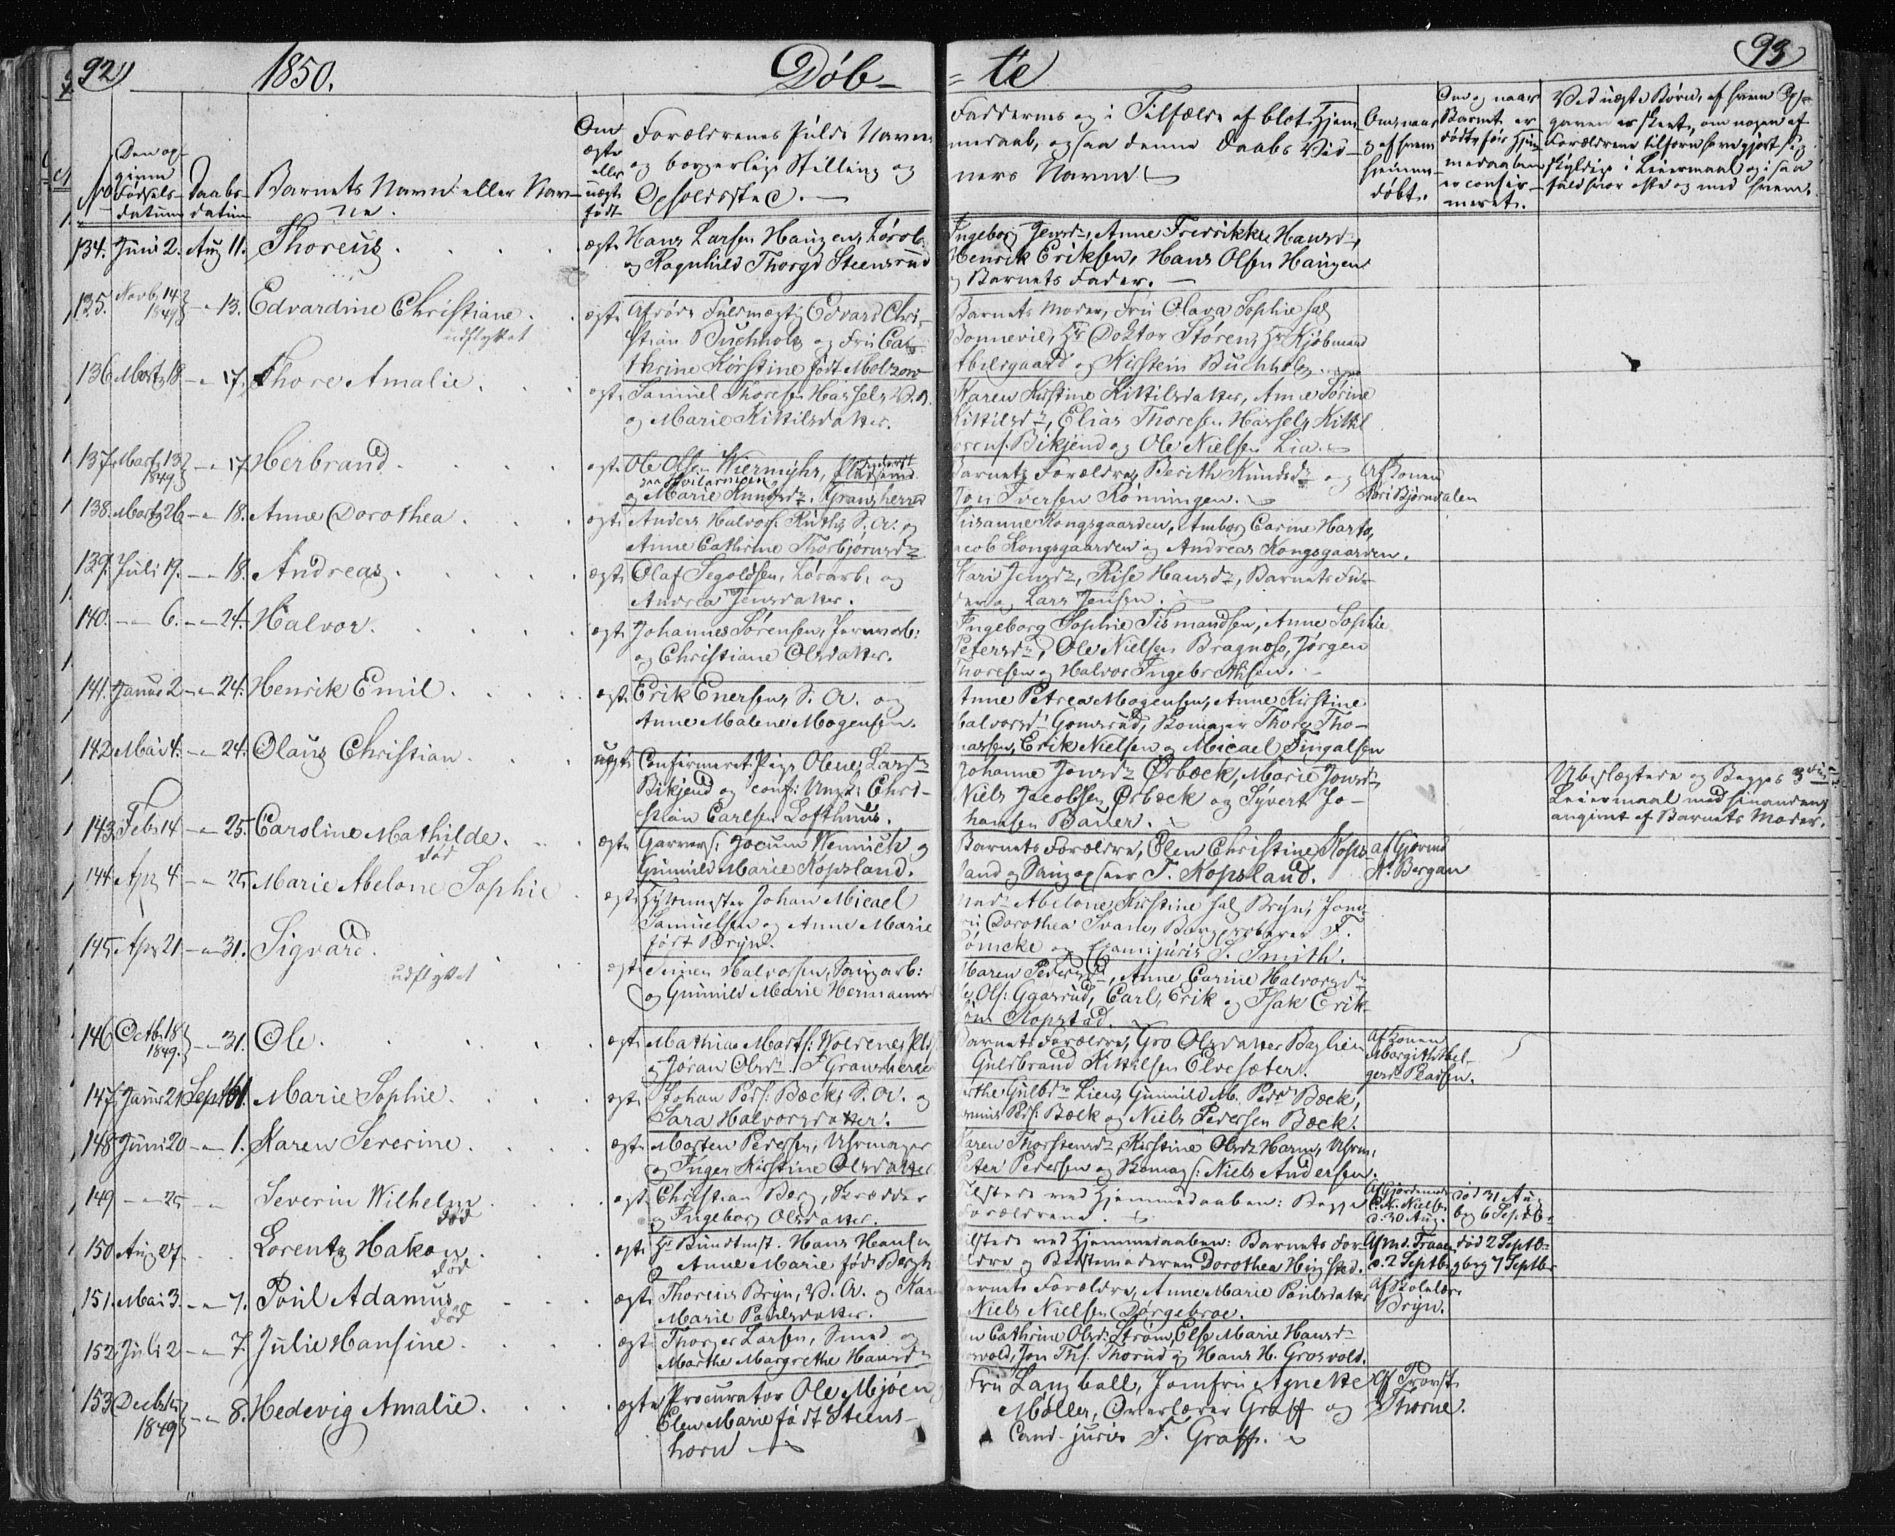 92)
1850.
Døb-
= te
93
No
Den op-
given
Fødsels-
datum
Daabs-
datum
Barnets Navn eller Nav-
ne.
Om
ægte
eller
uægte
født
Forældrenes fulde Navn
og borgerlige Stilling og
Opholdssted.
Faddernes og i Tilfælde af blot Hjem-
medaab, ogsaa denne Daabs Vid-
ners Navne
Om, naar
og af hvem
hjemme-
døbt.
Om og naar
Barnet er
død før Hjem
medaaben
er confir-
meret.
Ved uægte Børn, af hvem Op-
gaven er skeet, om nogen af
Forældrene tilforn have gjort sig
skyldig i Leiermaal og i saa
fald hvor ofte og med hvem.
134. Juni 2. Aug 11. Thoreus. ægte Hans Larsen Haugen, Løsarb.
og Ragnhild Thorgd Steensrud
Ingeborg Jensd, Anne Fredrikke Hansd,
Henrik Eriksen, Hans Olsen Haugen
og Barnets Fader.
135. Novbr 14 1849 - 13. Edvardine Christiane. ægte Afdøde Fuldmægtig Edvard Chri-
udflyttet
stian Buchholz og Fru Cat-
thrine Kirstine født Moltzow
Barnets Moder, Fru Olava Sophie sal
Bonnevie, Hr Doktor Støren, Hr Kjøbmand
Abilsgaard og Kirstein Buchholz.
136 Marts 18 - 17. Thore Amalie. ægte Samuel Thoresen Hassel, V.A.
og Marie Kittilsdatter.
Karen Kirstine Kittilsdatter, Anne Sørine
Kittilsd, Elias Thoresen Hassel, Kittil
Sørens. Bikjend og Ole Nielsen Lia.
137. Marts 13 1849 - 17 Herbrand. ægte Ole Olsen Wiermyhr,
og Marie Knudsd. Gransherred
Barnets Forældre, Berith Knudsd og
Jon Iversen Rønningen.
Af Konen
Kari Bjørndalen
138. Marts 26 - 18. Anne Dorothea. ægte Anders Halvors. Ruth, S.A. og
Anne Cathrine Thorbjørnsd
Susanne Kongsgaarden, Ambor Carine Harto,
Jacob Kongsgaarden og Andreas Kongsgaarden.
139. Juli 19. - 18. Andreas. ægte Olaf Segoldsen, Løsarb. og
Andrea Jensdatter.
Kari Jensd, Rise Hansd, Barnets Fa-
der og Lars Jensen.
140. - 6. - 24. Halvor. ægte Johannes Sørensen, Jernarb:
og Christiane Olsdatter.
Ingeborg Sophie Tismandsen, Anne Sophie
Petersd, Ole Nielsen Bragnæs, Jørgen
Thoresen og Halvor Ingebrethsen.
141. Januar 2 - 24. Henrik Emil. ægte Erik Enersen, S.A. og
Anne Malene Mogensen.
Anne Petrea Mogensen, Anne Kirstine
Halvorsd Gomsrud, Skomager Thore Tho-
massen, Erik Nielsen og Micael Fingalsen
142 Mai 4. - 24. Olaus Christian. uægte Confirmeret Pige Olene Larsd
Bikjend og conf: Ungk: Chri-
stian Carlsen Lofthuus.
Johanne Jonsd Ørbæck, Marie Jonsd,
Niels Jacobsen Ørbæck og Syvert Jo-
hansen Bader.
Ubeslægtede og Begges 3die
Leiermaal med hinanden,
angivet af Barnets Moder.
143 Febr 14 - 25. Caroline Mathilde. ægte Garvers. Jocum Wennich og
død
Gunnild Marie Kopsland.
Barnets Forældre, Olen Christine Kops-
land og Stuopseer T. Kopsland.
af Gjormd
A. Bergan
144 Apr 4 - 25 Marie Abelone Sophie. ægte Hyttemester Johan Micael
Samuelsen og Anne Marie
født Bryn.
Mad Abelone Kirstine sal Bryn, Jom-
fru Dorothea Svane, Bergprober F.
Lømcke og Exam: juris S. Smith.
145 Apr 21 - 31. Sigvard. ægte Simen Halvorsen, Saugarb:
udflyttet
og Gunnild Marie Hermansd
Maren Pedersd, Anne Carine Halvorsd
Ole Ols: Ggarrud, Carl, Erik og Isak Erik-
sen Kopstad.
146 Octbr 18 1849. - 31. Ole. ægte Mathias Marts: Wolrenes Pld
og Jøran Olsd. Gransherred
Barnets Forældre, Gro Olsdatter Baglien
Gulbrand Kittelsen Elvesæter.
Af Konen
Margith Hel-
gesd Plassen.
147. Januar 21 Septbr 1. Marie Sophie. ægte Johan Peds: Bæck, S.A. og
Sara Halvorsdatter.
Marthe Gulbrd Lien, Gunnild M. Pedd Bæck,
Peds: Bæck og Niels Pedersen Bæck.
148 Juni 20 - 1. Karen Severine. ægte Morten Pedersen, Uhrmager
og Inger Kirstine Olsdatter
Karen Thorstensd, Kirstine Olsd Harm, Uhrm.
Peter Pedersen og Skomag: Niels Andersen.
149 - 25 - Severin Wilhelm. ægte Christian Berg, Skrædder
død
og Ingeborg Olsdatter.
Tilstede ved Hjemmedaaben: Begge
Forældrene.
Af Gjordemd
C. N. Niels
d. 30 Aug.
død 31 Aug
beg 6 Septb
150 Aug 27. Lorentz Hakon. ægte Hr Bundtmst. Hans Hansen
død
og Anne Marie født Bergh
Tilstede ved Hjemmedaaben: Barnets For-
ældre og Bestemoderen Dorothea Hougsted.
Af Md. Fraaen
d. 2 Septbr
død 2 Septb
beg 7 Septbr
151. Mai 3. - 7. Poul Adamus. ægte Thorens Bryn, V.A. og Karn
død
Marie Poulsdatter.
Barnets Forældre, Anne Marie Poulsdatter
Niels Nielsen Dørgebroe.
Af Skolelær
Bryn.
152 Juli 2 - 7 Julie Hansine. ægte Thorger Larsen, Smed og
Marthe Margrethe Hansd
Cathrine Olsd: Strøm, Else Marie Hansd
Grosvold, Jon Ths. Thorud og Hans H. Grosvold.
153 Decbr 1849 - 8. Hedevig Amalie. ægte Procurator Ole Mjøen
Elen Marie født Steens-
horn
Fru Langball, Jomfru Agnette
Møller, Overlærer Graff og
Cand. juris F. Graff.
Af Provst
Thorne.